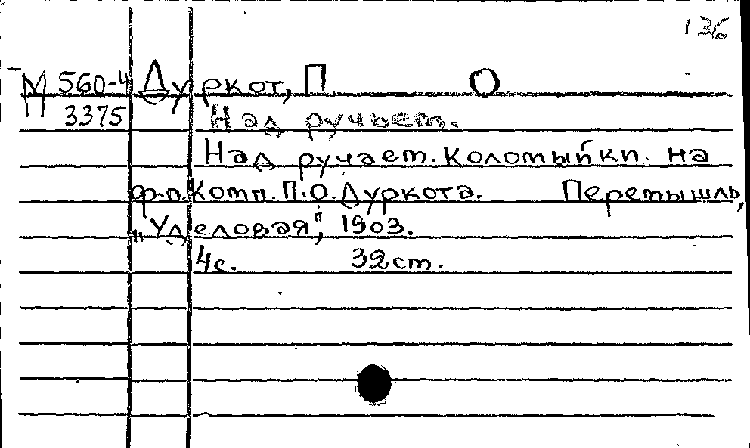 136
М 560-4 Дуркот, П О
3375 Над ручьем.
Над ручаем. Коломыйки. на
ф.п. Комп. П.О. Дуркота. Перемышль,
„Уделовая", 1903.
4с. 32ст.